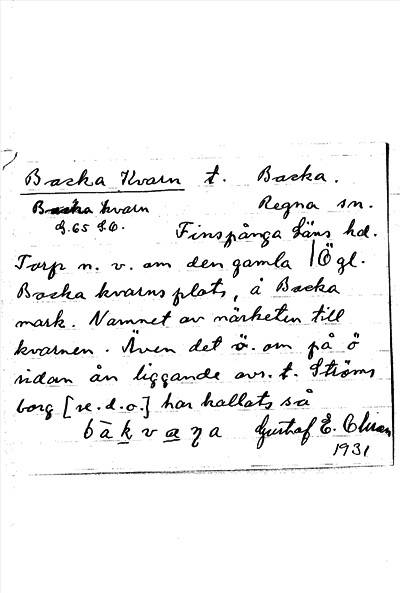 Backa Kvarn t. Backa.
Backa kvarn Regna sn.
G. 65 S.O. Finspånga Läns hd.
Torp n. v. om den gamla Ögl.
Backa kvarns plats, å Backa
mark. Namnet av närheten till
kvarnen. Även det ö. om på ö
sidan ån liggande avs. t. Ströms
borg [se. d. o.] har kallats så
Gustaf E. Olsson
1931